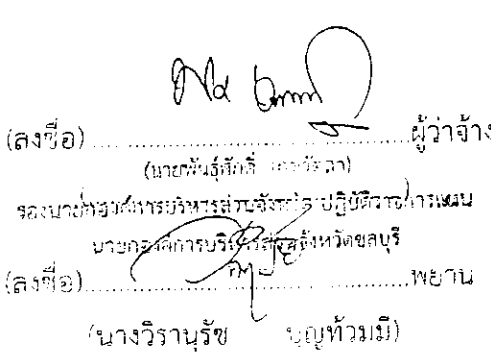 (ลงชื่อ)......................................ผู้ว่าจ้าง
(นายพันธุ์ศักดิ์
รองนายกองค์การบริหารส่วนจังหวัด ปฏิบัติราชการแทน
นายกองค์การบริหารส่วนจังหวัดชลบุรี
(ลงชื่อ)......................................พยาน
(นางวิรานุรัช บุญท้วมมี)